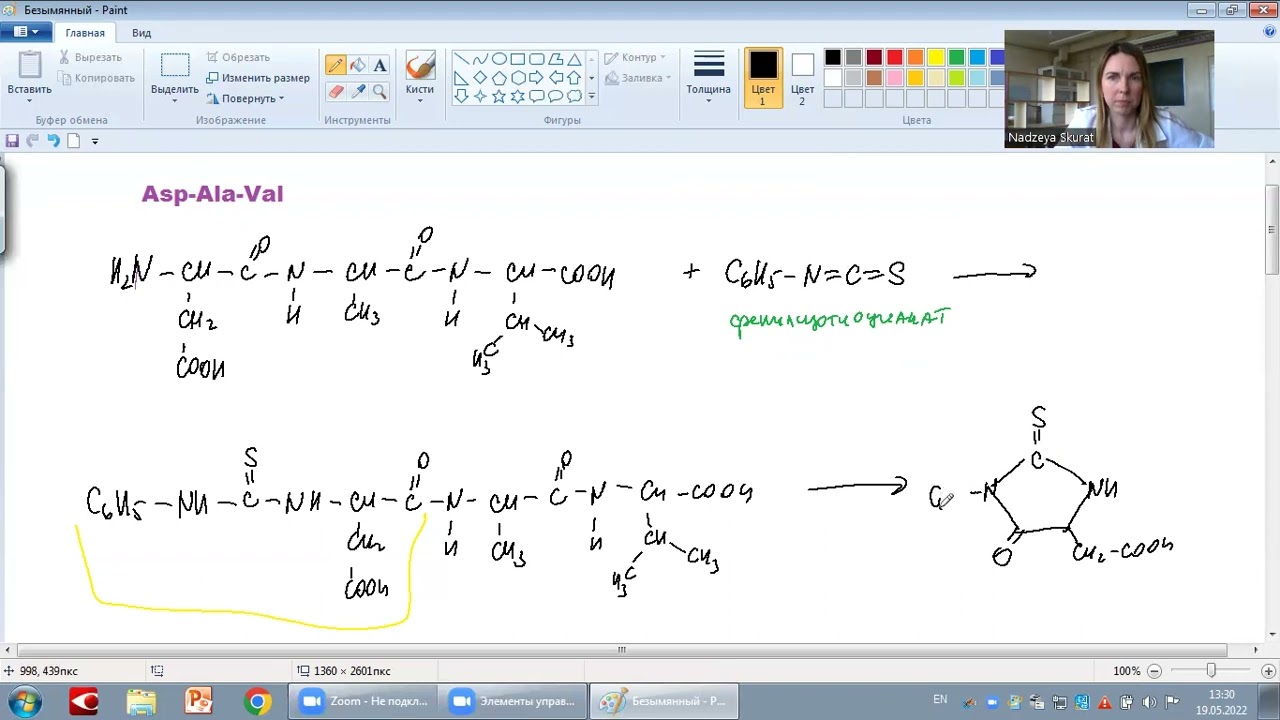 Безымянный - Paint
Главная
Вид
Вставить
Вырезать
Копировать
Буфер обмена
Выделить
Обрезать
Изменить размер
Повернуть
Изображение
A
Инструменты
Кисти
Контур
Заливка
Фигуры
Толщина
Цвет 1
Цвет 2
Цвета
Nadzeya Skurat
Asp-Ala-Val
O O
H₂N – CH – C – N – CH – C – N – CH – COOH + C₆H₅ – N = C = S
CH₂ H CH₃ H CH CH₃
фенилизотиоцианат
H₃C
COOH
S
S O O C
C₆H₅ – NH – C – NH – CH – C – N – CH – C – N – CH – COOH C – N NH
CH₂ H CH₃ H CH CH₃
O CH₂ – COOH
COOH H₃C
998, 439пкс
1360 × 2601пкс
100%
Zoom - Не подкл...
Элементы управ...
Безымянный - P...
EN
13:30
19.05.2022